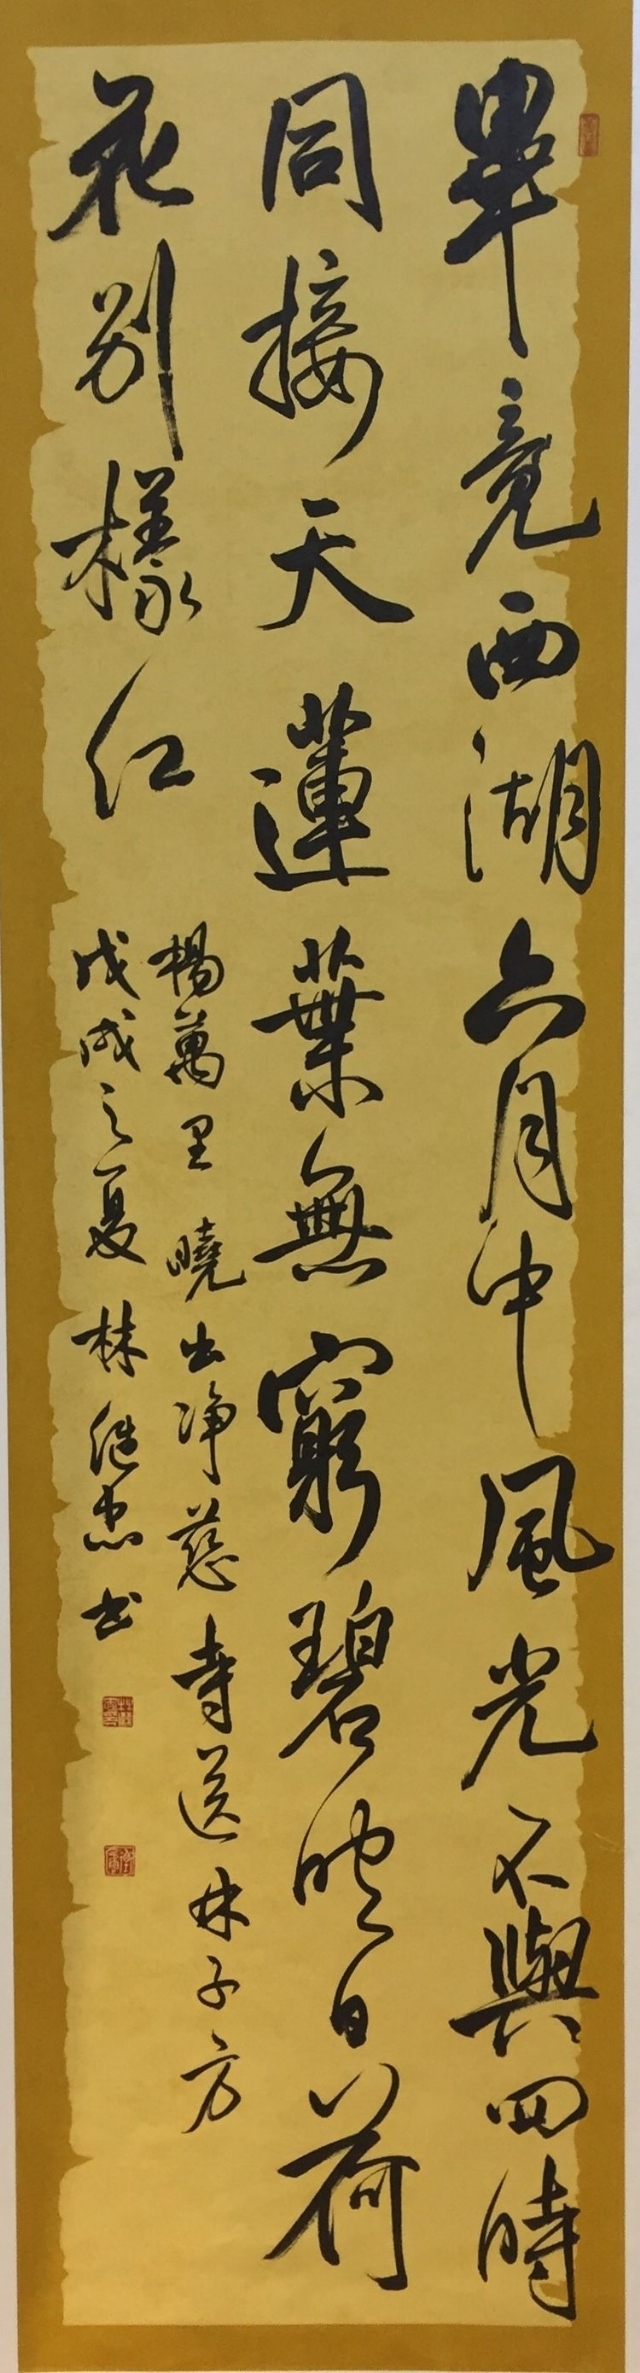 畢竟西湖六月中風光不與四時
同接天蓮葉無窮碧映日荷
花別樣红
楊萬里曉出净慈寺送林子方
戊戌之夏林继忠书